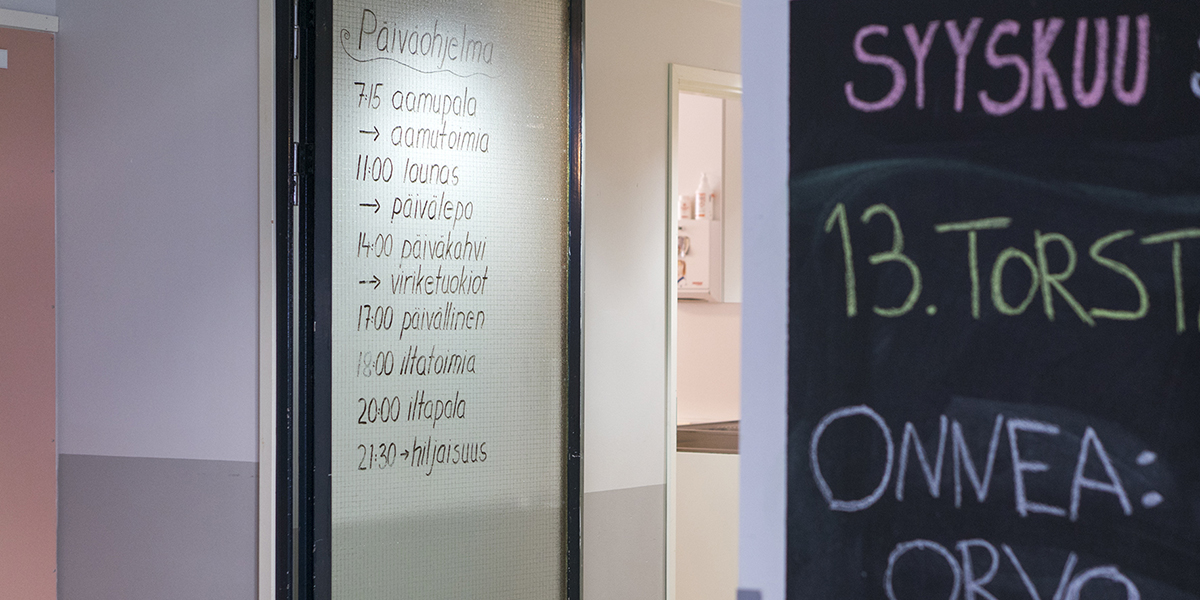 Päiväohjelma
7:15 aamupala
→ aamutoimia
11:00 lounas
→ päivälepo
14:00 päiväkahvi
→ viriketuokiot
17:00 päivällinen
18:00 iltatoimia
20:00 iltapala
21:30 → hiljaisuus
SYYSKUU
13. TORST
ONNEA:
ORVO